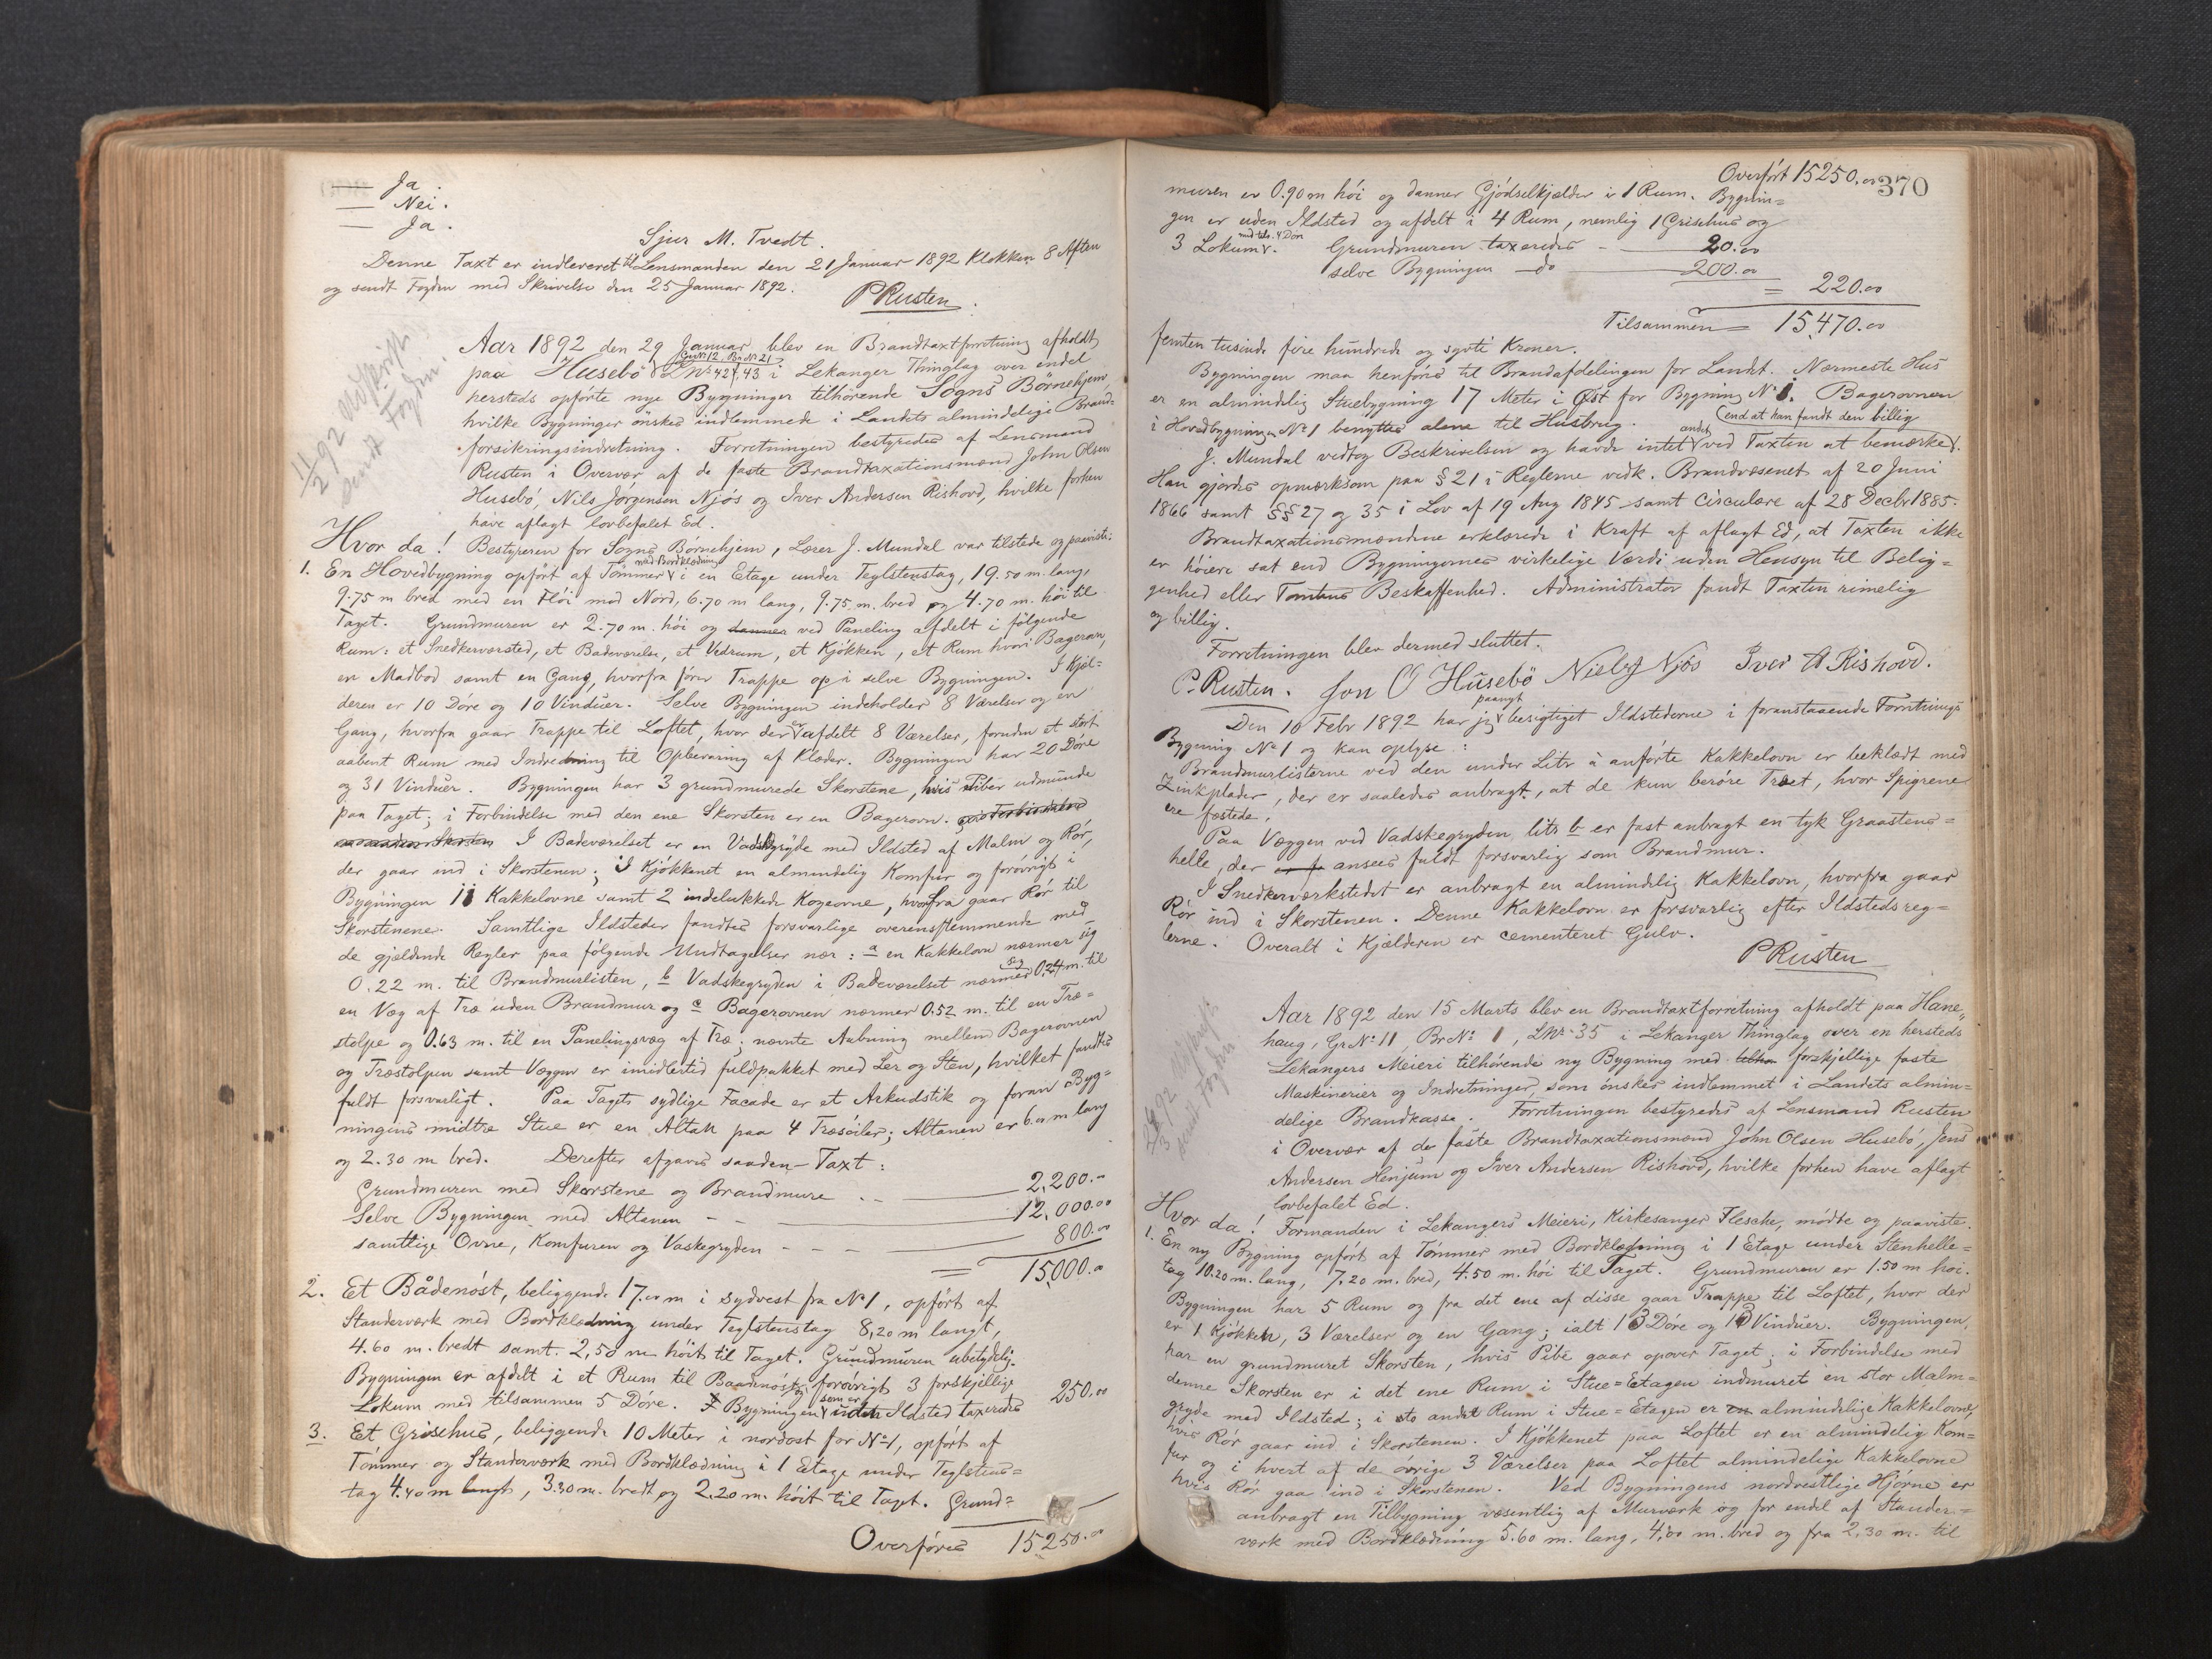 — Ja.
— Nei.
— Ja.
Sjur M. Tvedt.
Denne Taxt er indleveret til Lensmanden den 21 Januar 1892 Klokken 8 Aften
og sendt Fogden med Skrivelse den 25 Januar 1892.
P Rusten.
11/2 92 Udskrift
sendt Fogden.
Aar 1892 den 29 Januar blev en Brandtaxtforretning afholdt
GNr 12. BrNr 21
paa Husebö LNr 42 f. 43 i Lekanger Thinglag over endel
hersteds opførte nye Bygninger tilhørende Sogns Börnehjem,
hvilke Bygninger ønskes indlemmede i Landets almindelige Brand-
forsikringsindretning. Forretningen bestyredes af Lensmand
Rusten i Overvær af de faste Brandtaxationsmænd John Olsen
Husebö, Nils Jörgensen Njös og Iver Andersen Rishovd, hvilke forhen
have aflagt lovbefalet Ed.
Hvor da! Bestyreren for Sogns Börnehjem, Lærer J. Mundal var tilstede og paaviste:
med Bordklædning
1. En Hovedbygning opført af Tømmer i en Etage under Teglstenstag, 19.50 m. lang,
9.75 m bred med en Flöi mod Nord, 6.70 m lang, 9.75 m. bred og 4.70 m. höi til
Taget. Grundmuren er 2.70 m. höi og danner ved Paneling afdelt i følgende
Rum: et Snedkerværsted, et Badeværelse, et Vedrum, et Kjökken, et Rum hvori Bagerovn,
en Madbod samt en Gang, hvorfra förer Trappe op i selve Bygningen. I Kjæl-
deren er 10 Döre og 10 Vinduer. Selve Bygningen indeholder 8 Værelser og en
Gang, hvorfra gaar Trappe til Loftet, hvor der er afdelt 8 Værelser, foruden et stort
aabent Rum med Indredning til Opbevaring af Klæder. Bygningen har 20 Döre
og 31 Vinduer. Bygningen har 3 grundmurede Skorstene, hvis Piber udmunde
paa Taget; i Forbindelse med den ene Skorsten er en Bagerovn.
I Badeværelset er en Vadskegryde med Ildsted af Malm og Rör,
der gaar ind i Skorstenen; I Kjökkenet en almindelig Komfur og forövrigt i
Bygningen 11 Kakkelovne samt 2 indelukkede Kogeovne, hvorfra gaar Rör til
Skorstenene. Samtlige Ildsteder fandtes forsvarlige overensstemmende med
de gjældende Regler paa følgende Undtagelser nær: a en Kakkelovn nærmer sig
0.22 m. til Brandmurlisten, b Vadskegryden i Badeværelset nærmer sig 0.24 m. til
en Væg af Træ uden Brandmur og c Bagerovnen nærmer 0.52 m. til en Træ-
stolpe og 0.63 m. til en Panelingsvæg af Træ; nævnte Aabning mellem Bagerovnen
og Træstolpen samt Væggen er imidlertid fuldpakket med Ler og Sten, hvilket fandtes
fuldt forsvarligt. Paa Tagets sydlige Facade er et Arkudstik og foran Byg-
ningens midtre Stue er en Altan paa 4 Træsöiler; Altanen er 6.00 m lang
og 2.30 m bred. Derefter afgaves saaden Taxt:
Grundmuren med Skorstene og Brandmure — 2,200.00
Selve Bygningen med Altanen — 12,000.00
samtlige Ovne, Komfuren og Vaskegryden — 800.00
= 15,000.00
2. Et Bådenöst, beliggende 17.00 m i sydvest fra No 1, opført af
Standerværk med Bordklædning under Teglstenstag 8,20 m langt,
4.60 m. bredt samt 2,50 m höit til Taget. Grundmuren ubetydelig.
Bygningen er afdelt i et Rum til Baadenöst og forövrigt 3 forskjellige
Lokum med tilsammen 5 Döre. Bygningen som er uden Ildsted taxeredes 250.00
3. Et Grisehus, beliggende 10 Meter i nordost for No 1, opført af
Tömmer og Standerværk med Bordklædning i 1 Etage under Teglstens-
tag 4.40 m langt, 3.30 m. bredt og 2.20 m. höit til Taget. Grund-
Overføres 15250.00
370
Overført 15250.00
muren er 0.90 m höi og danner Gjödselkjælder i 1 Rum. Bygnin-
gen er uden Ildsted og afdelt i 4 Rum, nemlig 1 Grisehus og
med tils. 4 Döre
3 Lokum. Grundmuren taxeredes — 20.00
selve Bygningen — do — 200.00
= 220.00
Tilsammen = 15,470.00
femten tusinde fire hundrede og sytti Kroner.
Bygningen maa henføres til Brandafdelingen for Landet. Nærmeste Hus
er en almindelig Stuebygning 17 Meter i Öst for Bygning No 1. Bagerovnen
i Hovedbygningen No 1 benyttes alene til Husbrug.
andet (end at han fandt den billig
J. Mundal vedtog Beskrivelsen og havde intet ved Taxten at bemærke.
Han gjordes opmærksom paa § 21 i Reglerne vedk. Brandvæsenet af 20 Juni
1866 samt §§ 27 og 35 i Lov af 19 Aug 1845 samt Circulære af 28 Decbr 1885.
Brandtaxationsmændene erklærede i Kraft af aflagt Ed, at Taxten ikke
er höiere sat end Bygningernes virkelige Værdi uden Hensyn til Belig-
genhed eller Tomtens Beskaffenhed. Administrator fandt Taxten rimelig
og billig.
Forretningen blev dermed sluttet.
P. Rusten. Jon O Husebö Niels J Njös Iver A Rishovd.
paanyt
Den 10 Febr 1892 har jeg besigtiget Ildstederne i foranstaaende Forretnings
Bygning No 1 og kan oplyse:
Brandmurlisterne ved den under Litr a anførte Kakkelovn er beklædt med
Zinkplader, der er saaledes anbragt, at de kun beröre Træet, hvor Spigrene
ere fæstede.
Paa Væggen ved Vadskegryden litr b er fast anbragt en tyk Graastens-
helle, der ansees fuldt forsvarlig som Brandmur.
I Snedkerværkstedet er anbragt en almindelig Kakkelovn, hvorfra gaar
Rör ind i Skorstenen. Denne Kakkelovn er forsvarlig efter Ildstedsreg-
lerne. Overalt i Kjælderen er cementeret Gulv.
P Rusten
Udskrift
sendt Fogden
Aar 1892 den 15 Marts blev en Brandtaxtforretning afholdt paa Hane-
haug, GrNo 11, BrNo 1, LNr 35 i Lekanger Thinglag over en hersteds
Lekangers Meieri tilhørende ny Bygning med forskjellige faste
Maskinerier og Indretninger, som ønskes indlemmet i Landets almin-
delige Brandkasse. Forretningen bestyredes af Lensmand Rusten
i Overvær af de faste Brandtaxationsmænd John Olsen Husebö, Jens
Andersen Henjum og Iver Andersen Rishovd, hvilke forhen have aflagt
lovbefalet Ed.
Hvor da! Formanden i Lekangers Meieri, Kirkesanger Flesche, mödte og paaviste.
1. En ny Bygning opført af Tömmer med Bordklædning i 1 Etage under Stenhelle-
tag 10.20 m. lang, 7.20 m. bred, 4.50 m. höi til Taget. Grundmuren er 1.50 m höi.
Bygningen har 5 Rum og fra det ene af disse gaar Trappe til Loftet, hvor der
er 1 Kjökken, 3 Værelser og en Gang; ialt 13 Döre og 13 Vinduer. Bygningen,
har en grundmuret Skorsten, hvis Pibe gaar opover Taget; i Forbindelse med
denne Skorsten er i det ene Rum i Stue-Etagen indmuret en stor Malm-
gryde med Ildsted; i et andet Rum i Stue-Etagen er almindelige Kakkelovne,
hvis Rör gaar ind i Skorstenen. I Kjökkenet paa Loftet er en almindelig Kom-
fur og i hvert af de övrige 3 Værelser paa Loftet almindelige Kakkelovne
hvis Rör gaa ind i Skorstenen. Ved Bygningens nordvestlige Hjörne er
anbragt en Tilbygning væsentlig af Murværk og for endel af Stander-
værk med Bordklædning 5.60 m. lang, 4.00 m. bred og fra 2.30 m. til